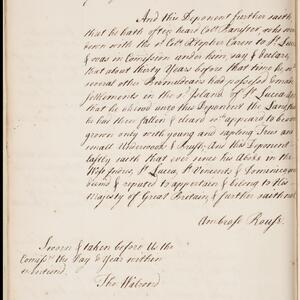 And this Deponent further saith
that he hath often heard Coll. Faulster, who went
down with the sd. Coll. Stephen Caren to St. Lucea
& was in Comission under him, say & declare
that about thirty Years before that time he &
several other Barbadians had possessed Considerable
settlements in the sd. Island of St. Lucea, and
that he shewed unto this Deponent the Land that
he had then fallen & cleard wch. appeared to be over
grown only with young and sapling Trees and
small Underwood & Brush; And this Deponent
lastly saith that ever since his Abode in the
West Indies, St. Lucea, St. Vincents & Dominico are
deemed & reputed to appertain & belong to His
Majesty of Great Britain, & further saith not
Ambrose Rouse
Sworn & taken before Us the
Comissrs. the Day & Year within
mentioned.
Tho Walrond